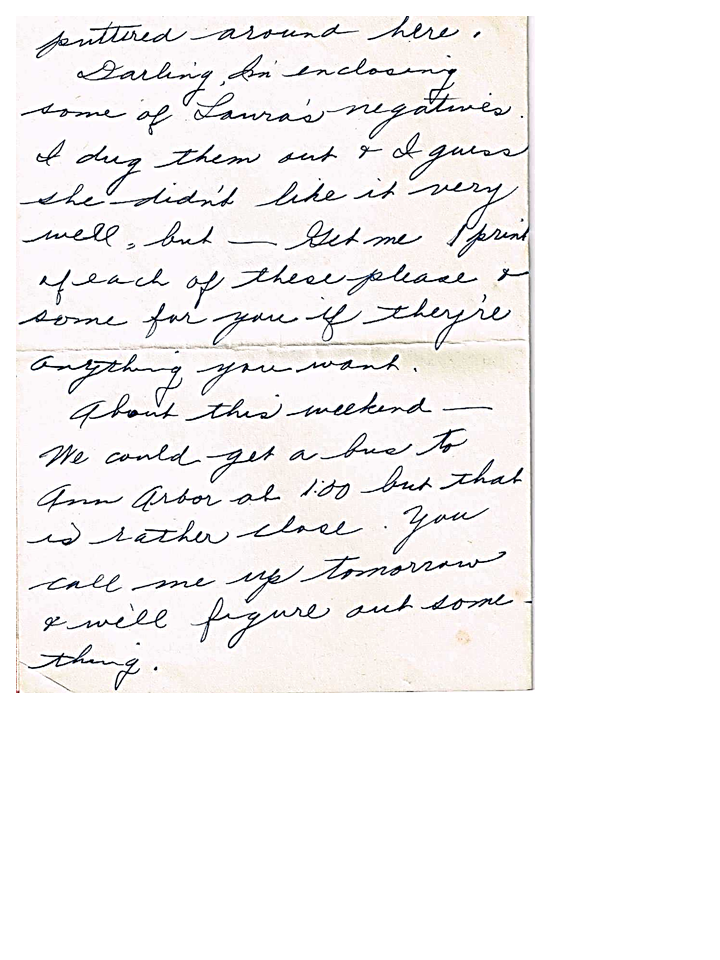 puttered around here.
Darling, I'm enclosing
some of Laura's negatives.
I dug them out & I guess
she didn't like it very
well, but — Get me 1 print
of each of these please &
some for you if they're
anything you want.
About this weekend —
We could get a bus to
Ann Arbor at 1:00 but that
is rather close. You
call me up tomorrow
& we'll figure out some-
thing.